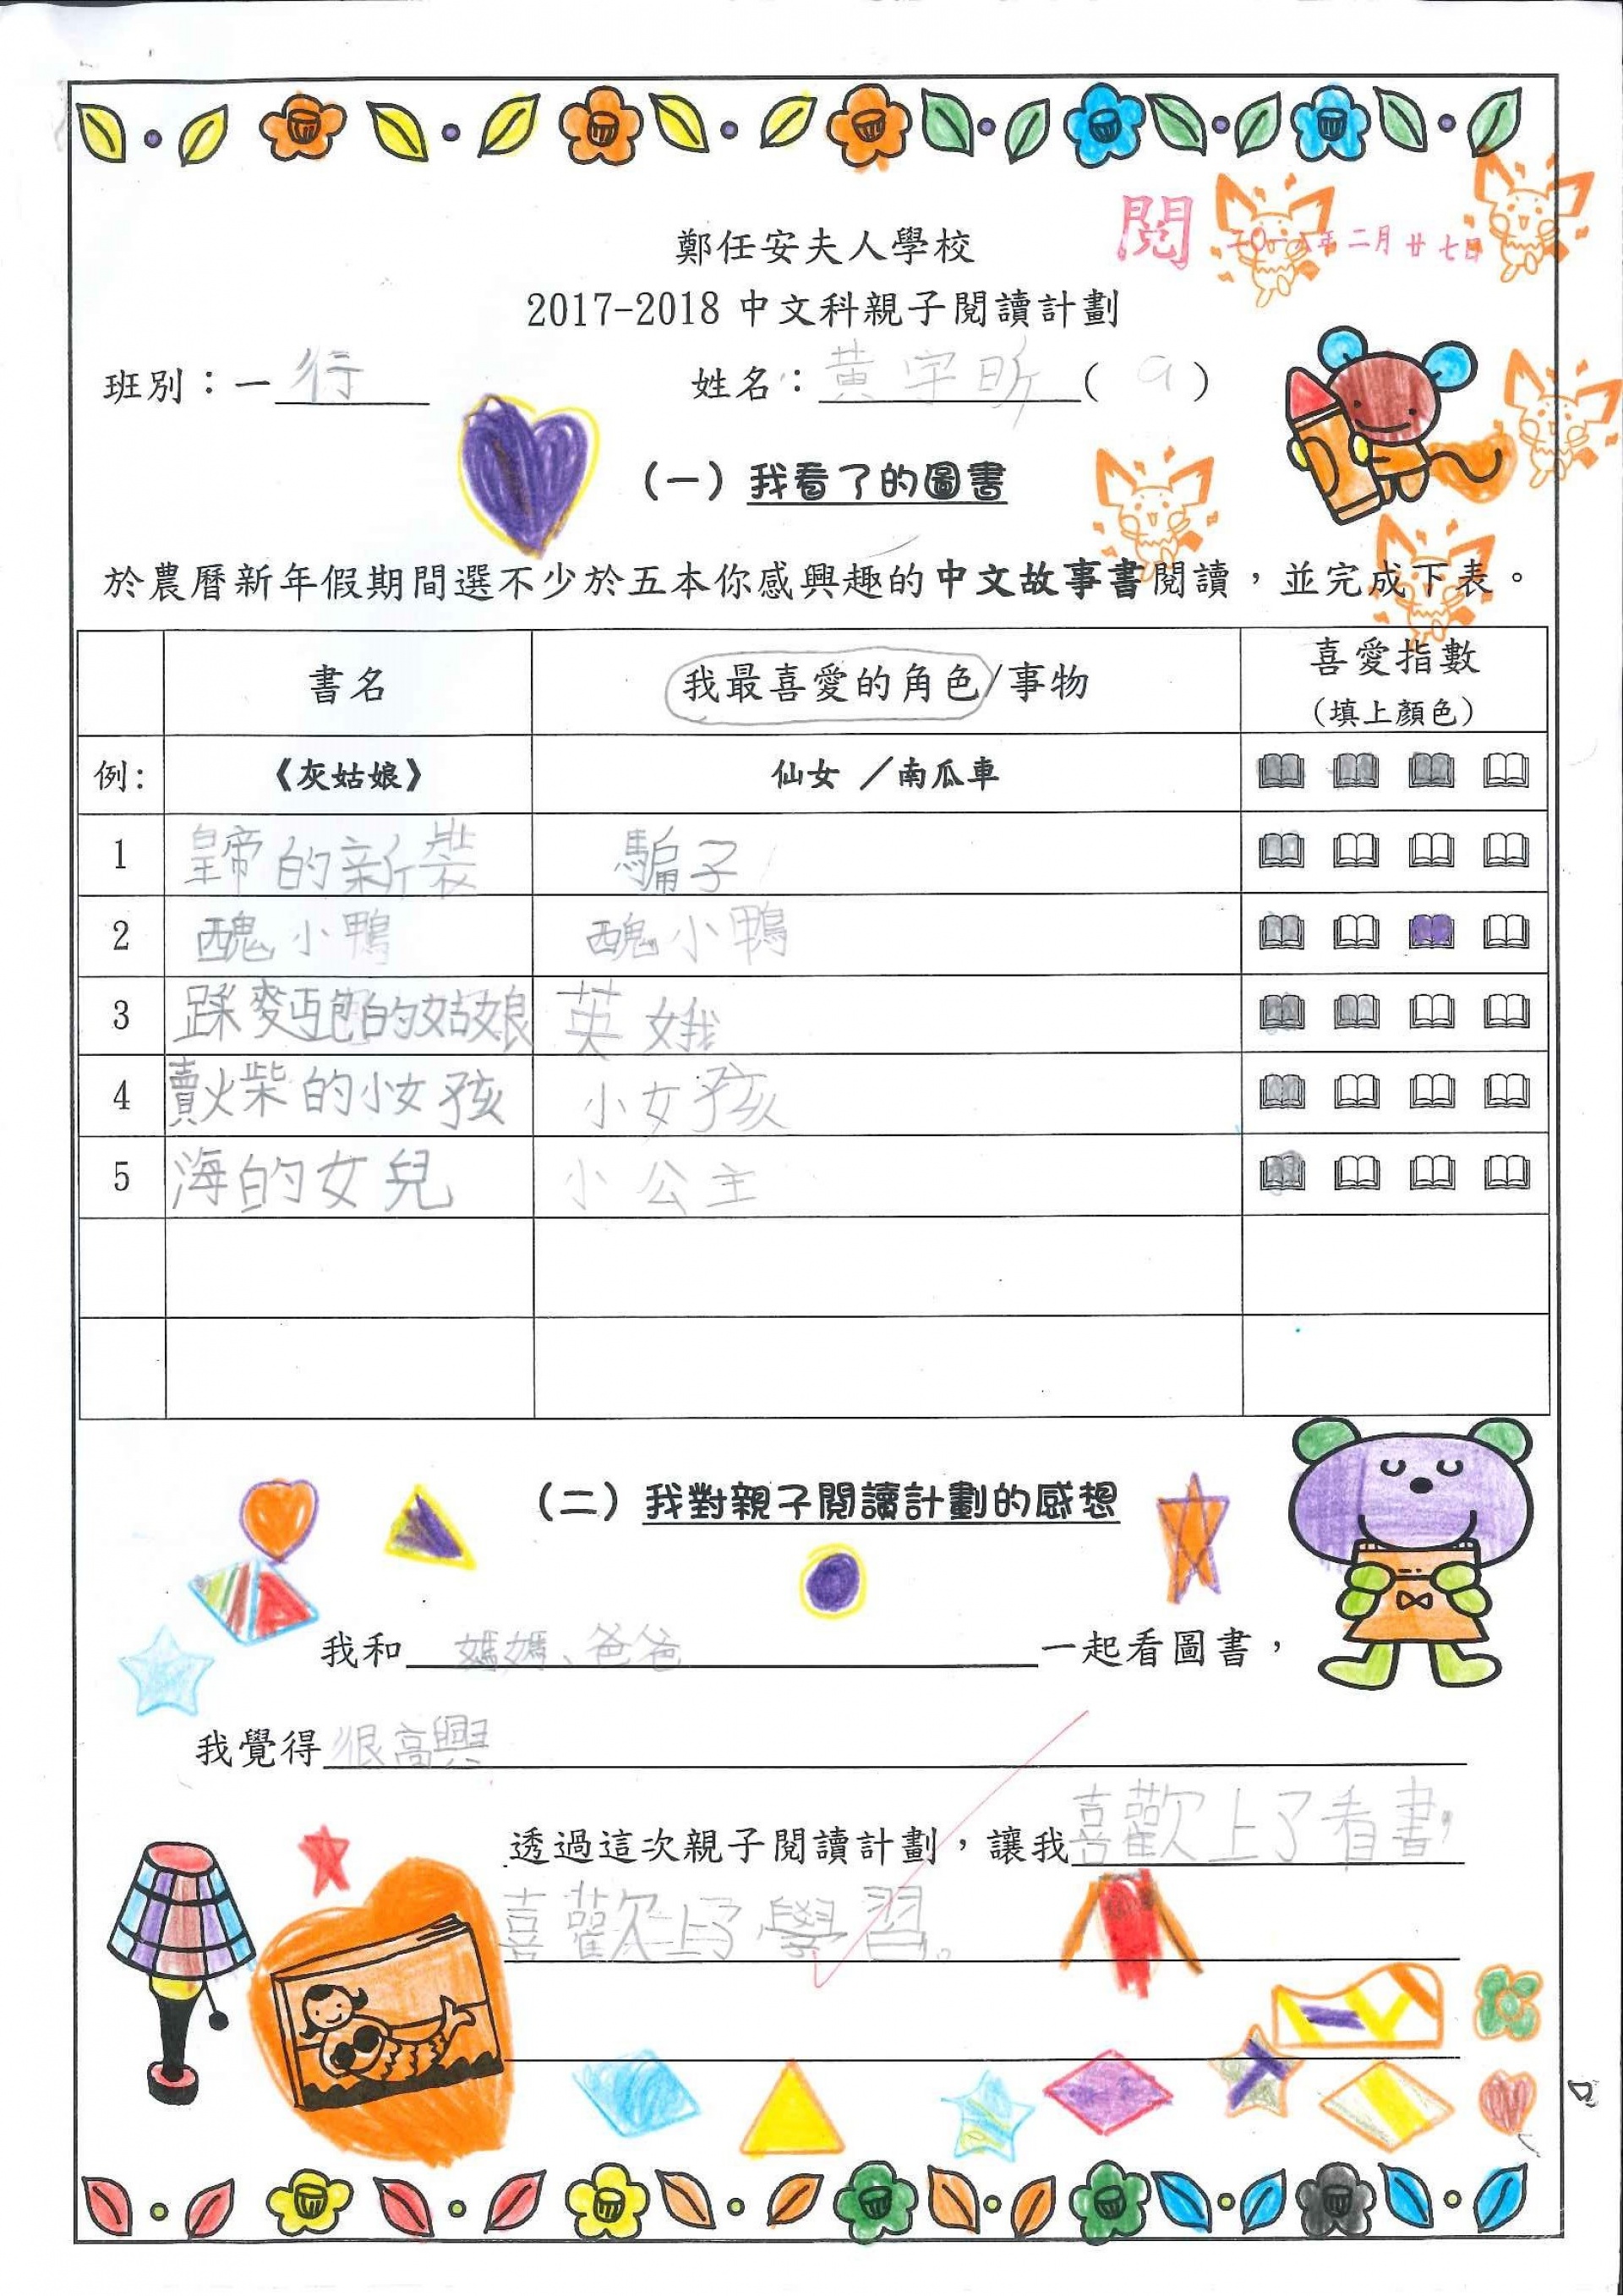 鄭任安夫人學校
閱 二〇一八年二月廿七日
2017-2018 中文科親子閱讀計劃
班別：一 行 姓名：黃宇昕 ( 9 )
（一）我看了的圖書
於農曆新年假期間選不少於五本你感興趣的中文故事書閱讀，並完成下表。
書名 我最喜愛的角色/事物 喜愛指數
（填上顏色）
例： 《灰姑娘》 仙女 ／南瓜車
1 皇帝的新裝 騙子
2 醜小鴨 醜小鴨
3 踩麥麵包的姑娘 英娥
4 賣火柴的小女孩 小女孩
5 海的女兒 小公主
（二）我對親子閱讀計劃的感想
我和 媽媽、爸爸 一起看圖書，
我覺得 很高興
透過這次親子閱讀計劃，讓我 喜歡上了看書，
喜歡上了學習。